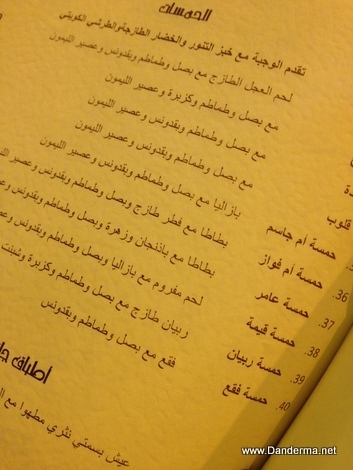 الحمسات
تقدم الوجبة مع خبز التنور والخضار الطازجة والطرشي الكويتي
لحم العجل الطازج مع بصل وطماطم وبقدونس وعصير الليمون
مع بصل وطماطم وكزبرة وعصير الليمون
مع بصل وطماطم وبقدونس وعصير الليمون
مع بصل وطماطم وبقدونس وعصير الليمون
قلوب
بازاليا مع بصل وطماطم وبقدونس وعصير
حمسة أم جاسم
بطاطا مع فطر طازج وبصل وطماطم وبقدونس وعصير
36. حمسة أم فواز
بطاطا مع باذنجان وزهرة وبصل وطماطم وبقدونس
37. حمسة عامر
لحم مفروم مع بازاليا وبصل وطماطم وبقدونس
38. حمسة قيمة
ربيان طازج مع بصل وطماطم وكزبرة وشبنت
39. حمسة ربيان
فقع مع بصل وطماطم وبقدونس
40. حمسة فقع
أطباق
عيش بسمتي نثري مطهوا مع
www.Danderma.net